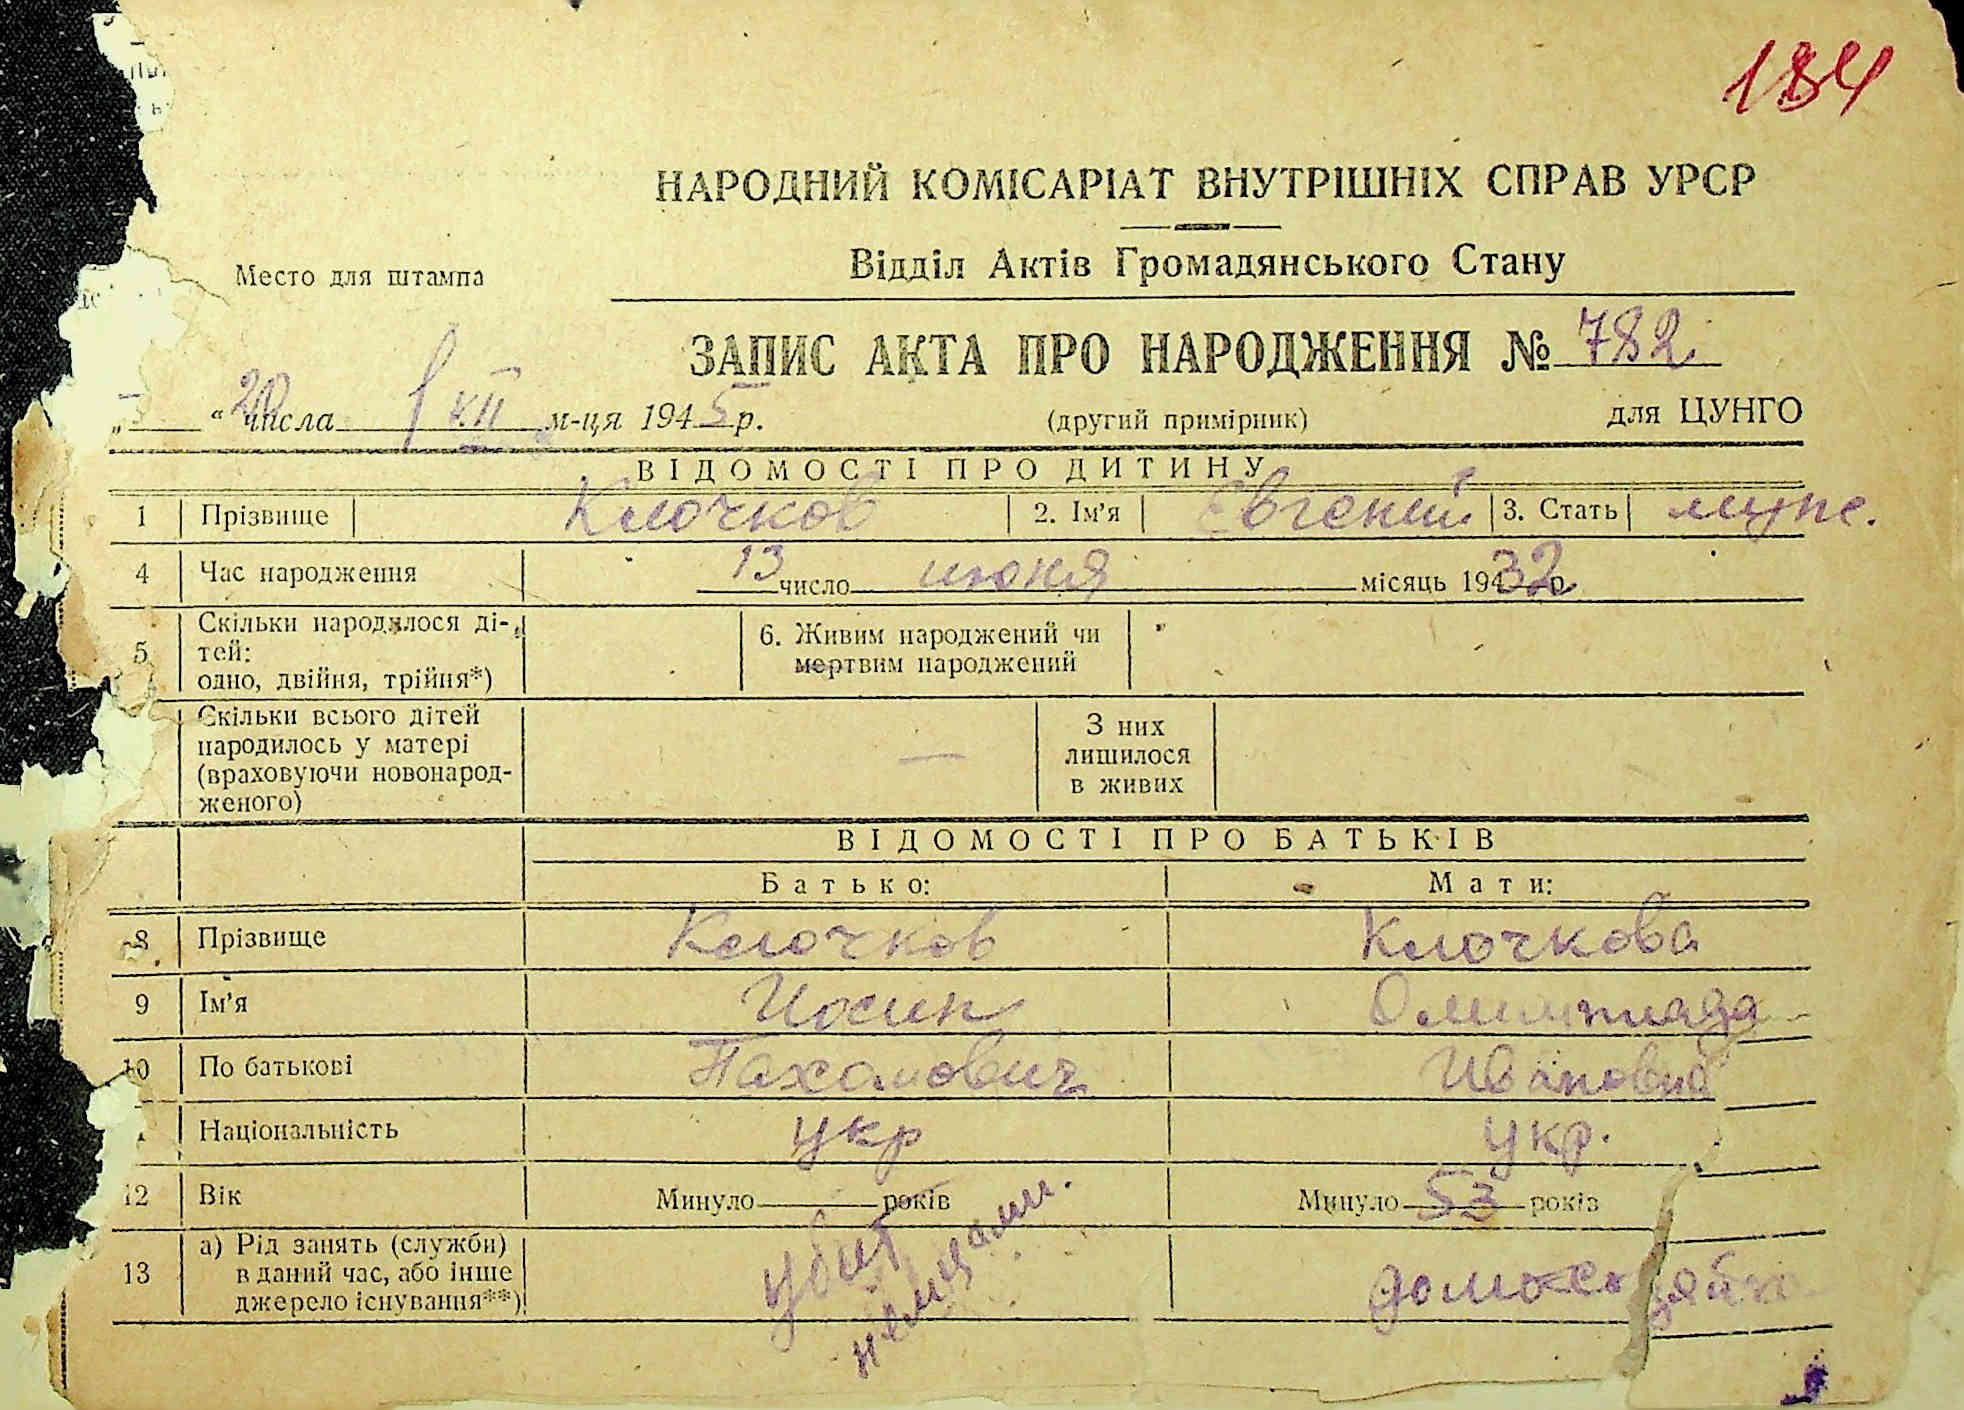 184
НАРОДНИЙ КОМІСАРІАТ ВНУТРІШНІХ СПРАВ УРСР
Место для штампа
Відділ Актів Громадянського Стану
ЗАПИС АКТА ПРО НАРОДЖЕННЯ № 782
„ “ 20 числа XII м-ця 1945 р. (другий примірник) для ЦУНГО
ВІДОМОСТІ ПРО ДИТИНУ
1 Прізвище Клочков 2. Ім'я Евгений 3. Стать муж.
4 Час народження 13 число июня місяць 194 32 р
5 Скільки народилося ді-
тей:
одно, двійня, трійня*)
6. Живим народжений чи
мертвим народжений
Скільки всього дітей
народилось у матері
(враховуючи новонарод-
женого)
—
З них
лишилося
в живих
ВІДОМОСТІ ПРО БАТЬКІВ
Батько: Мати:
8 Прізвище Клочков Клочкова
9 Ім'я Иосип Олимпиада
10 По батькові Пахомович Ивановна
Національність укр укр.
12 Вік Минуло років Минуло 53 років
13 а) Рід занять (служби)
в даний час, або інше
джерело існування**)
убит
немцами.
домохозяйка